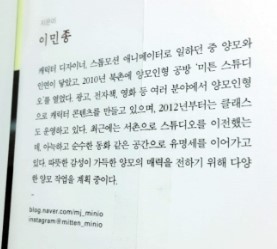 지은이
이민종
캐릭터 디자이너, 스톱모션 애니메이터로 일하던 중 양모와
인연이 닿았고, 2010년 북촌에 양모인형 공방 '미튼 스튜디
오'를 열었다. 광고, 전자책, 영화 등 여러 분야에서 양모인형
으로 캐릭터 콘텐츠를 만들고 있으며, 2012년부터는 클래스
도 운영하고 있다. 최근에는 서촌으로 스튜디오를 이전했는
데, 아늑하고 순수한 동화 같은 공간으로 유명세를 이어가고
있다. 따뜻한 감성이 가득한 양모의 매력을 전하기 위해 다양
한 양모 작업을 계획 중이다.
blog.naver.com/mj_minio
instagram@mitten_minio